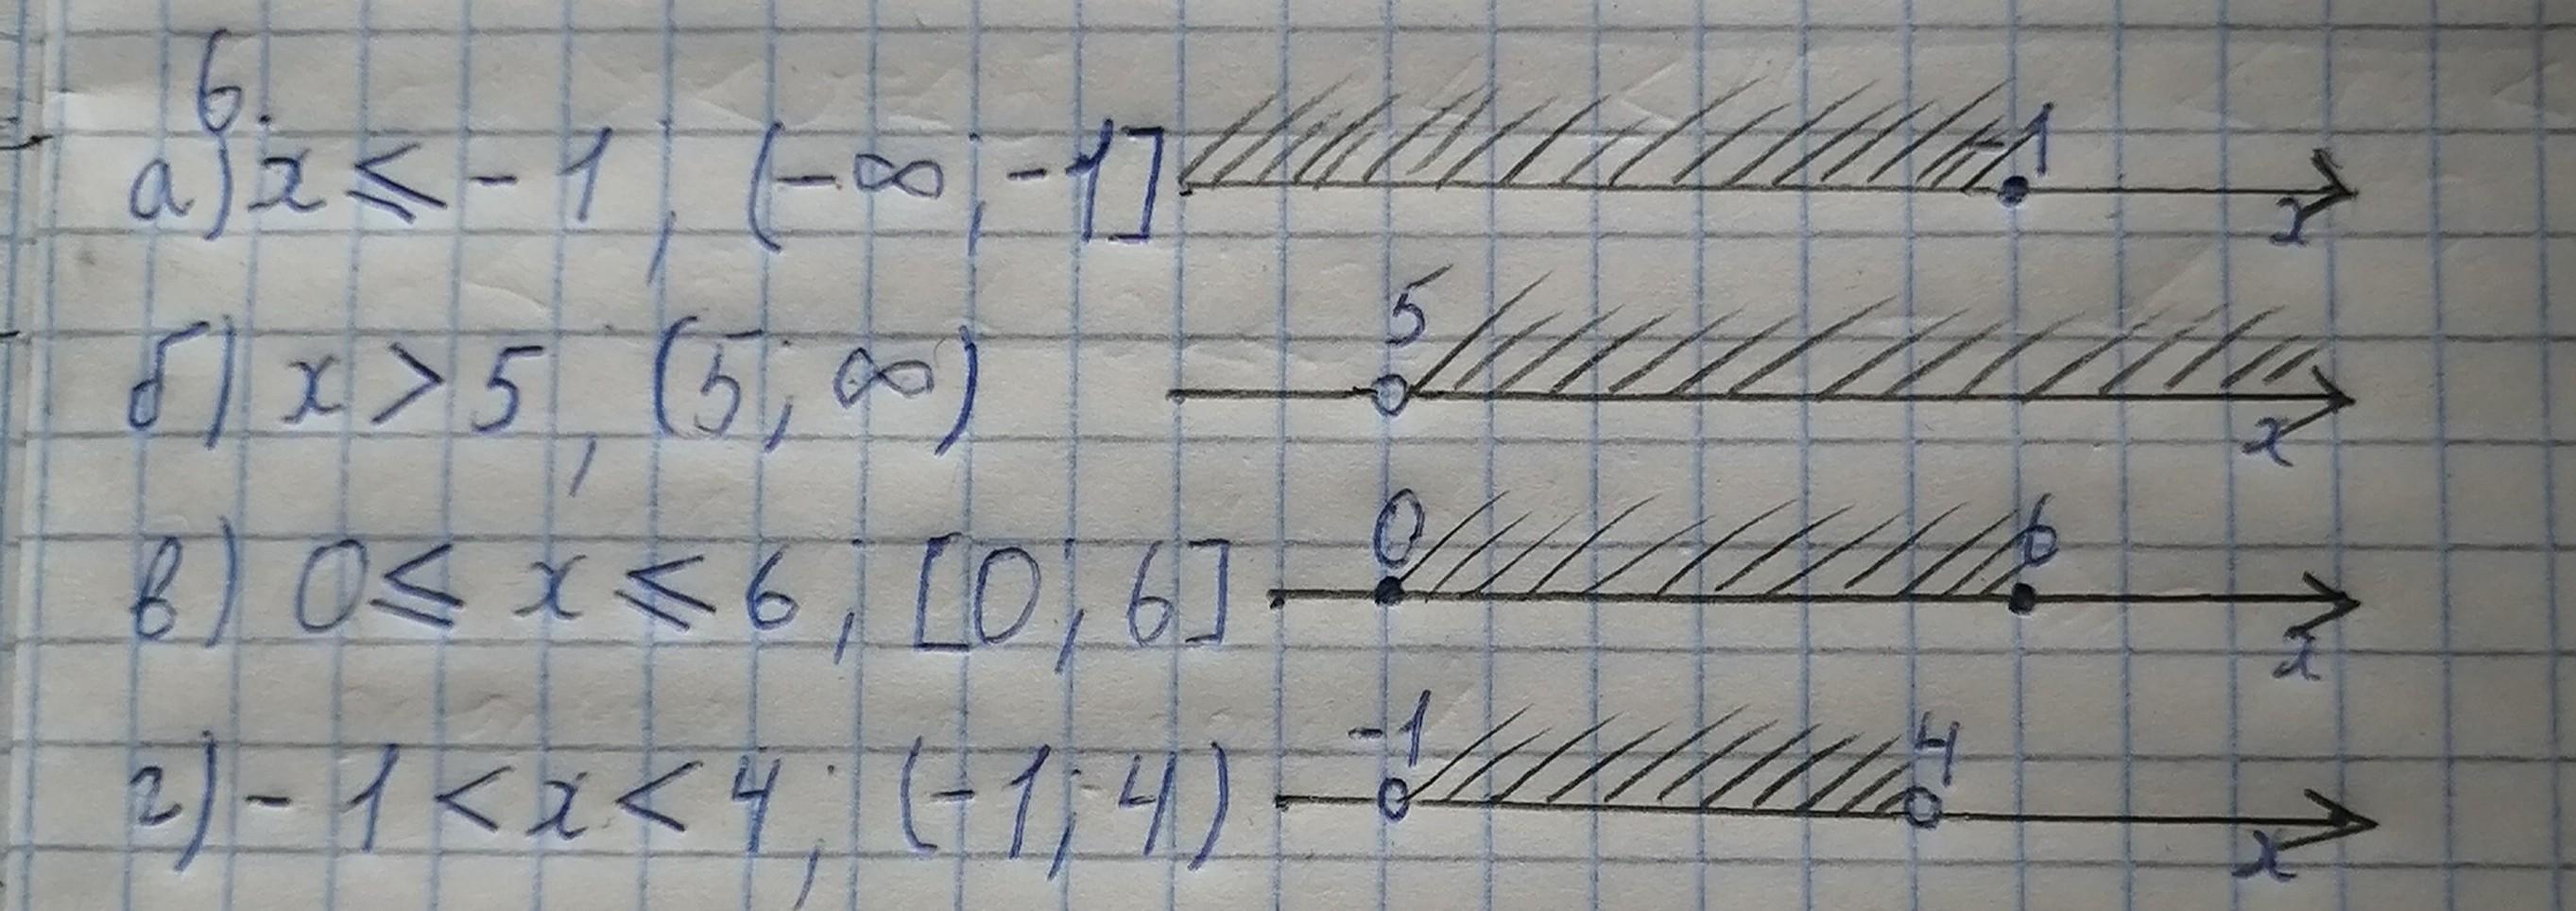 6.
а) x ⩽ -1; (-∞; -1] -1 x
б) x > 5; (5; ∞) 5 x
в) 0 ⩽ x ⩽ 6; [0; 6] 0 6 x
г) -1 < x < 4; (-1; 4) -1 4 x